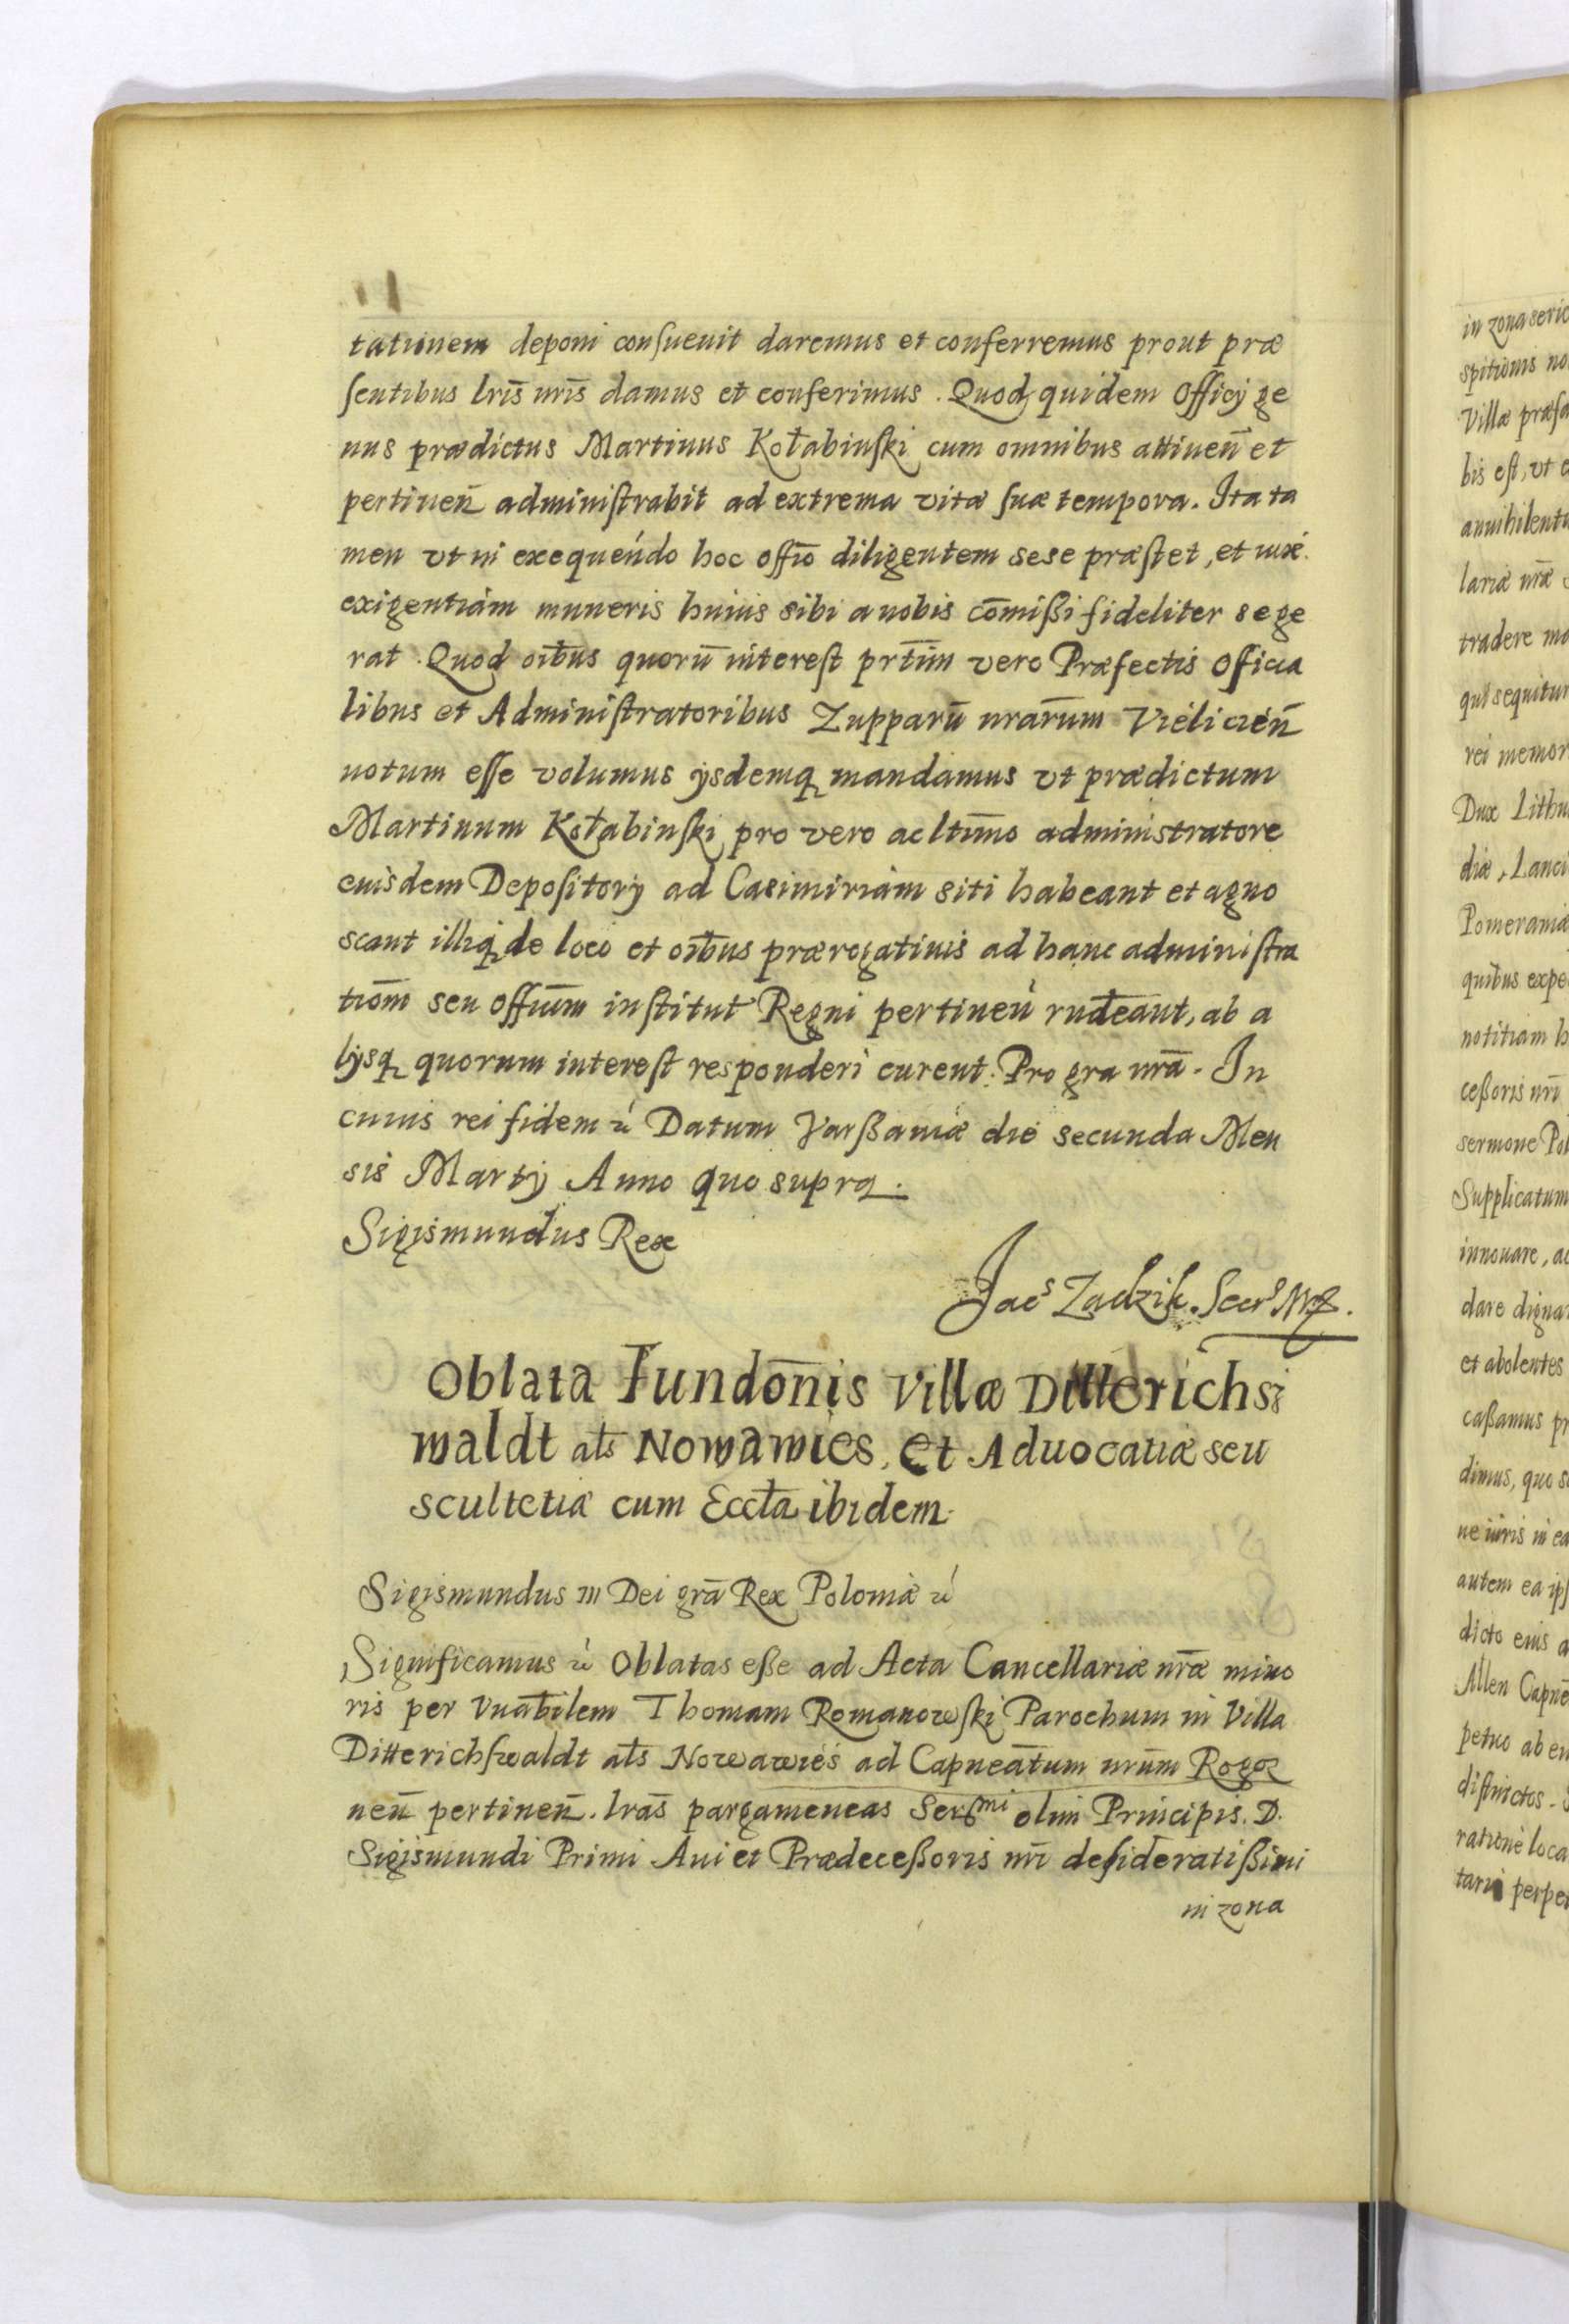 tationem deponi consueuit daremus et conferremus prout præ
sentibus lrīs nrīs damus et conferimus. Quod quidem officij ge
nus prædictus Martinus Kołabinski cum omnibus attinen̄ et
pertinen̄ administrabit ad extrema vitæ suæ tempora. Ita ta
men vt in exequendo hoc offīo diligentem sese præstet, et iuxe.
exigentiam muneris huius sibi a nobis cōmißi fideliter se ge
rat. Quod oībus quorū interest prtīm vero Præfectis officia
libus et Administratoribus Zupparū nrārum Vielicien̄
notum esse volumus ijsdemq mandamus vt prædictum
Martinum Kołabinski pro vero ac ltīmo administratore
euisdem Depositorij ad Casimiriam siti habeant et agno
scant illiq de loco et oībus prærogatiuis ad hanc administra
tiōm seu offīum institut Regni pertinen̄ rn̄deant, ab a
lijsq quorum interest responderi curent. Pro gra nrā. In
cuius rei fidem &c Datum Varßauiæ die secunda Men
sis Martij Anno quo supra.
Sigismundus Rex
Jacs Zadzik. Secrs Mtis.
Oblata Fundōnis Villæ Ditterichsz
waldt als Nowawies, et Aduocatiæ seu
scultetiæ cum Eccła ibidem.
Sigismundus III Dei grā Rex Poloniæ &c
Significamus &c Oblatas eße ad Acta Cancellariæ nræ mino
ris per Vnābilem Thomam Romanowski Parochum in Villa
Ditterichswaldt als Nowawies ad Capneātum nrūm Rogoz
nen̄ pertinen̄. lrās pargameneas Serßmi olim Principis. D.
Sigismundi Primi Aui et Prædeceßoris nrī desideratißimi
in zona
in zona seric
spitionis no
Villæ præfa
bis est, vt
annihilent
lariæ nrǣ
tradere ma
qui sequitur
rei memor
Dux Lithu
diæ, Lanci
Pomerania
quibus expe
notitiam h
ceßoris nrī
sermone Pol
Supplicatum
innouare, ac
dare digna
et abolentes
caßamus pr
dimus, quo s
ne iuris in ea
autem ea ips
dicto euis a
Allen Capnē
petuo ab eu
distinctos.
ratione loca
tari perpe